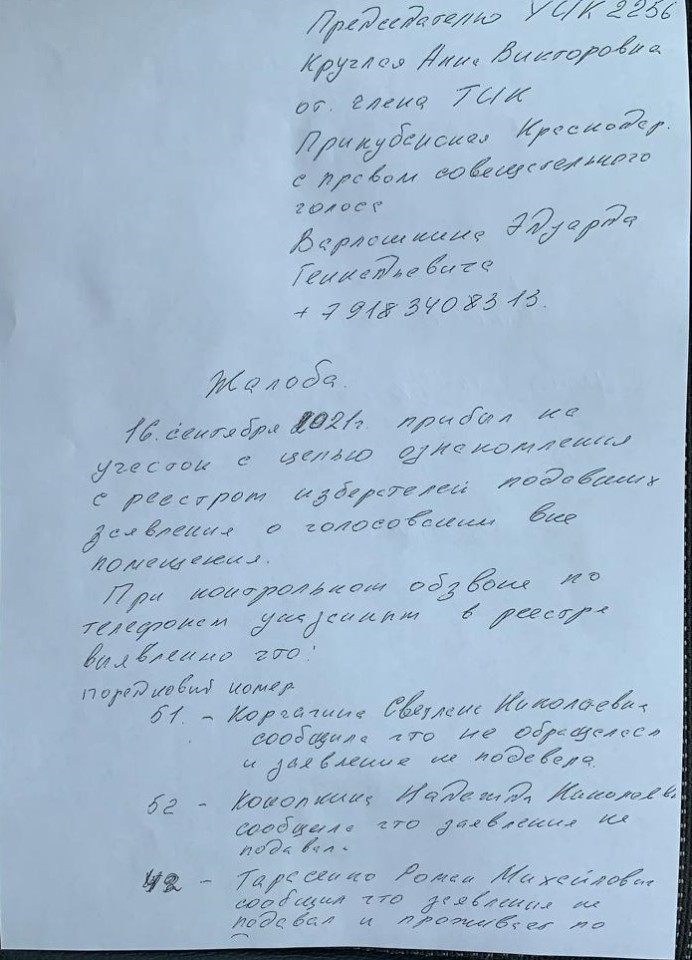 Председателю УИК 2256
Круглая Анна Викторовна
от. члена ТИК
Прикубанская Краснодар.
с правом совещательного
голоса
Варлашкина Эдуарда
Геннадьевича
+ 7 918 340 83 13.
Жалоба.
16. сентября 2021г. прибыл на
участок с целью ознакомления
с реестром избирателей подавших
заявления о голосовании вне
помещения.
При контрольном обзвоне по
телефонам указанным в реестре
выявленно что:
порядковый номер
51. - Корчагина Светлана Николаевна
сообщила что не обращалась
и заявление не подавала.
52 - Коноплина Надежда Николаевна
сообщила что заявления не
подавала
42 - Тарасенко Роман Михайлович
сообщил что заявления не
подавал и проживает по